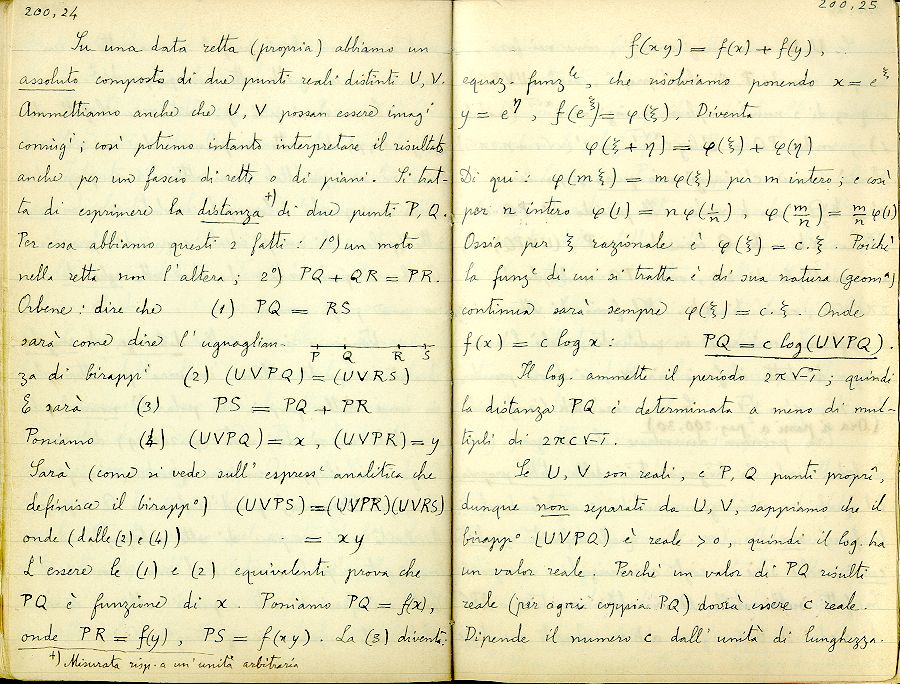 200,24
Su una data retta (propria) abbiamo un
assoluto composto di due punti reali distinti U, V.
Ammettiamo anche che U, V possan essere imag.ⁱ
coniug.ⁱ; così potremo intanto interpretare il risultato
anche per un fascio di rette o di piani. Si trat-
ta di esprimere la distanza⁺⁾ di due punti P, Q.
Per essa abbiamo questi 2 fatti: 1º) un moto
nella retta non l'altera; 2º) PQ + QR = PR.
Orbene: dire che (1) PQ = RS
sarà come dire l'uguaglian- P Q R S
za di birappⁱ (2) (UVPQ) = (UVRS)
E sarà (3) PS = PQ + PR
Poniamo (4) (UVPQ) = x, (UVPR) = y
Sarà (come si vede sull'espresᵉ analitica che
definisce il birappº) (UVPS) = (UVPR)(UVRS)
onde (dalle (2) e (4)) = xy
L'essere le (1) e (2) equivalenti prova che
PQ è funzione di x. Poniamo PQ = f(x),
onde PR = f(y), PS = f(xy). La (3) diventa:
+) Misurata risp. a un'unità arbitraria
200,25
f(xy) = f(x) + f(y),
equaz. funzˡᵉ, che risolviamo ponendo x = e^ξ
y = e^η, f(e^ξ) = φ(ξ). Diventa
φ(ξ + η) = φ(ξ) + φ(η)
Di qui: φ(mξ) = mφ(ξ) per m intero; e così
per n intero φ(1) = nφ(1/n), φ(m/n) = m/n φ(1)
Ossia per ξ razionale è φ(ξ) = c.ξ. Poichè
la funzᵉ di cui si tratta è di sua natura (geomᵃ)
continua sarà sempre φ(ξ) = c.ξ. Onde
f(x) = c log x: PQ = c log(UVPQ).
Il log. ammette il periodo 2π√-1; quindi
la distanza PQ è determinata a meno di mul-
tipli di 2πc√-1.
Se U, V son reali, e P, Q punti proprî,
dunque non separati da U, V, sappiamo che il
birappº (UVPQ) è reale > 0, quindi il log. ha
un valor reale. Perchè un valor di PQ risulti
reale (per ogni coppia PQ) dovrà essere c reale.
Dipende il numero c dall'unità di lunghezza.